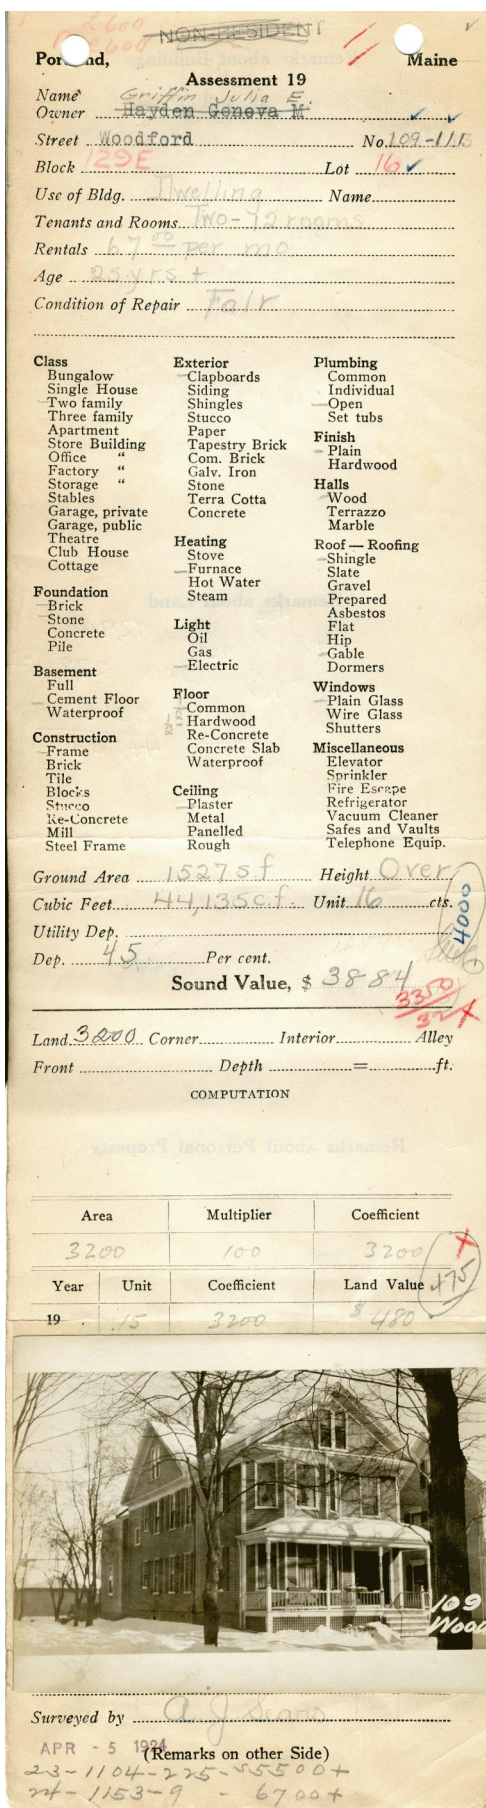 2600
2600
NON-RESIDENT
Portland, Maine
Assessment 19
Name Griffin Julia E.
Owner Hayden Geneva M.
Street Woodford No. 109-113
Block 129E Lot 16
Use of Bldg. Dwelling Name
Tenants and Rooms Two-12 rooms
Rentals 67 00 per mo
Age 25 yrs +
Condition of Repair Fair
Class
Bungalow
Single House
Two family
Three family
Apartment
Store Building
Office "
Factory "
Storage "
Stables
Garage, private
Garage, public
Theatre
Club House
Cottage
Foundation
Brick
Stone
Concrete
Pile
Basement
Full
Cement Floor
Waterproof
Construction
Frame
Brick
Tile
Blocks
Stucco
Re-Concrete
Mill
Steel Frame
Exterior
Clapboards
Siding
Shingles
Stucco
Paper
Tapestry Brick
Com. Brick
Galv. Iron
Stone
Terra Cotta
Concrete
Heating
Stove
Furnace
Hot Water
Steam
Light
Oil
Gas
Electric
Floor
Common
Hardwood
Re-Concrete
Concrete Slab
Waterproof
Ceiling
Plaster
Metal
Panelled
Rough
Plumbing
Common
Individual
Open
Set tubs
Finish
Plain
Hardwood
Halls
Wood
Terrazzo
Marble
Roof — Roofing
Shingle
Slate
Gravel
Prepared
Asbestos
Flat
Hip
Gable
Dormers
Windows
Plain Glass
Wire Glass
Shutters
Miscellaneous
Elevator
Sprinkler
Fire Escape
Refrigerator
Vacuum Cleaner
Safes and Vaults
Telephone Equip.
Ground Area 1527 sf Height Over
Cubic Feet 44,135 c.f. Unit 16 cts.
4000
Utility Dep.
Dep. 45 Per cent.
Sound Value, $ 3884
3350
Land 3200 Corner Interior Alley
Front Depth = ft.
COMPUTATION
Area Multiplier Coefficient
3200 100 3200
Year Unit Coefficient Land Value 475
19 .15 3200 $ 480
109
Wood
Surveyed by A. J. Sears
APR - 5 1924
(Remarks on other Side)
23-1104-225-55500+
24-1153-9 - 6700+